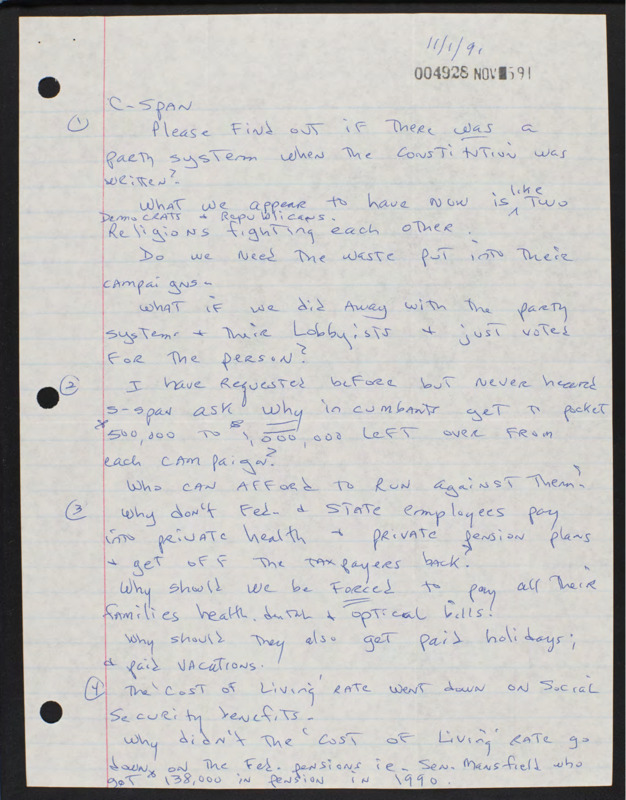 11/1/91
004928 NOV 591
C-SPAN
① Please Find out if There was a
party system when The Constitution was
written?
What we appear to have now is like Two
Democrats + Republicans.
Religions fighting each other.
Do we Need The waste put into Their
campaigns-
What if we did Away with The party
system + Their Lobbyists + just voted
For The person?
② I have Requested before but never heard
S-span ask Why incumbants get to pocket
$500,000 to $1,000,000 Left over From
each campaign?
Who can Afford to Run against Them?
③ Why don't Fed- & State employees pay
into private health + private pension plans
+ get off The taxpayers back?
Why should we be Forced to pay all Their
families health, dental + optical bills!
Why should They also get paid holidays;
& paid vacations.
④ The 'Cost of Living' Rate went down on Social
Security benefits-
Why didn't The 'Cost of Living' Rate go
down on The Fed. pensions ie- Sen. Mansfield who
got 138,000 in pension in 1990.